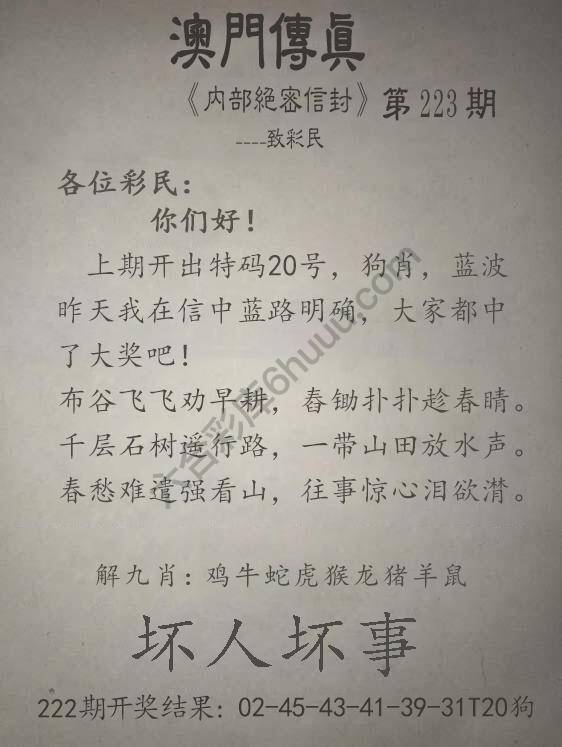 澳門傳眞
《内部絕密信封》第223期
----致彩民
各位彩民：
你们好！
上期开出特码20号，狗肖，蓝波
昨天我在信中蓝路明确，大家都中
了大奖吧！
布谷飞飞劝早耕，舂锄扑扑趁春晴。
千层石树遥行路，一带山田放水声。
春愁难遣强看山，往事惊心泪欲潸。
解九肖：鸡牛蛇虎猴龙猪羊鼠
坏人坏事
222期开奖结果：02-45-43-41-39-31T20狗
六合彩库6huuu.com